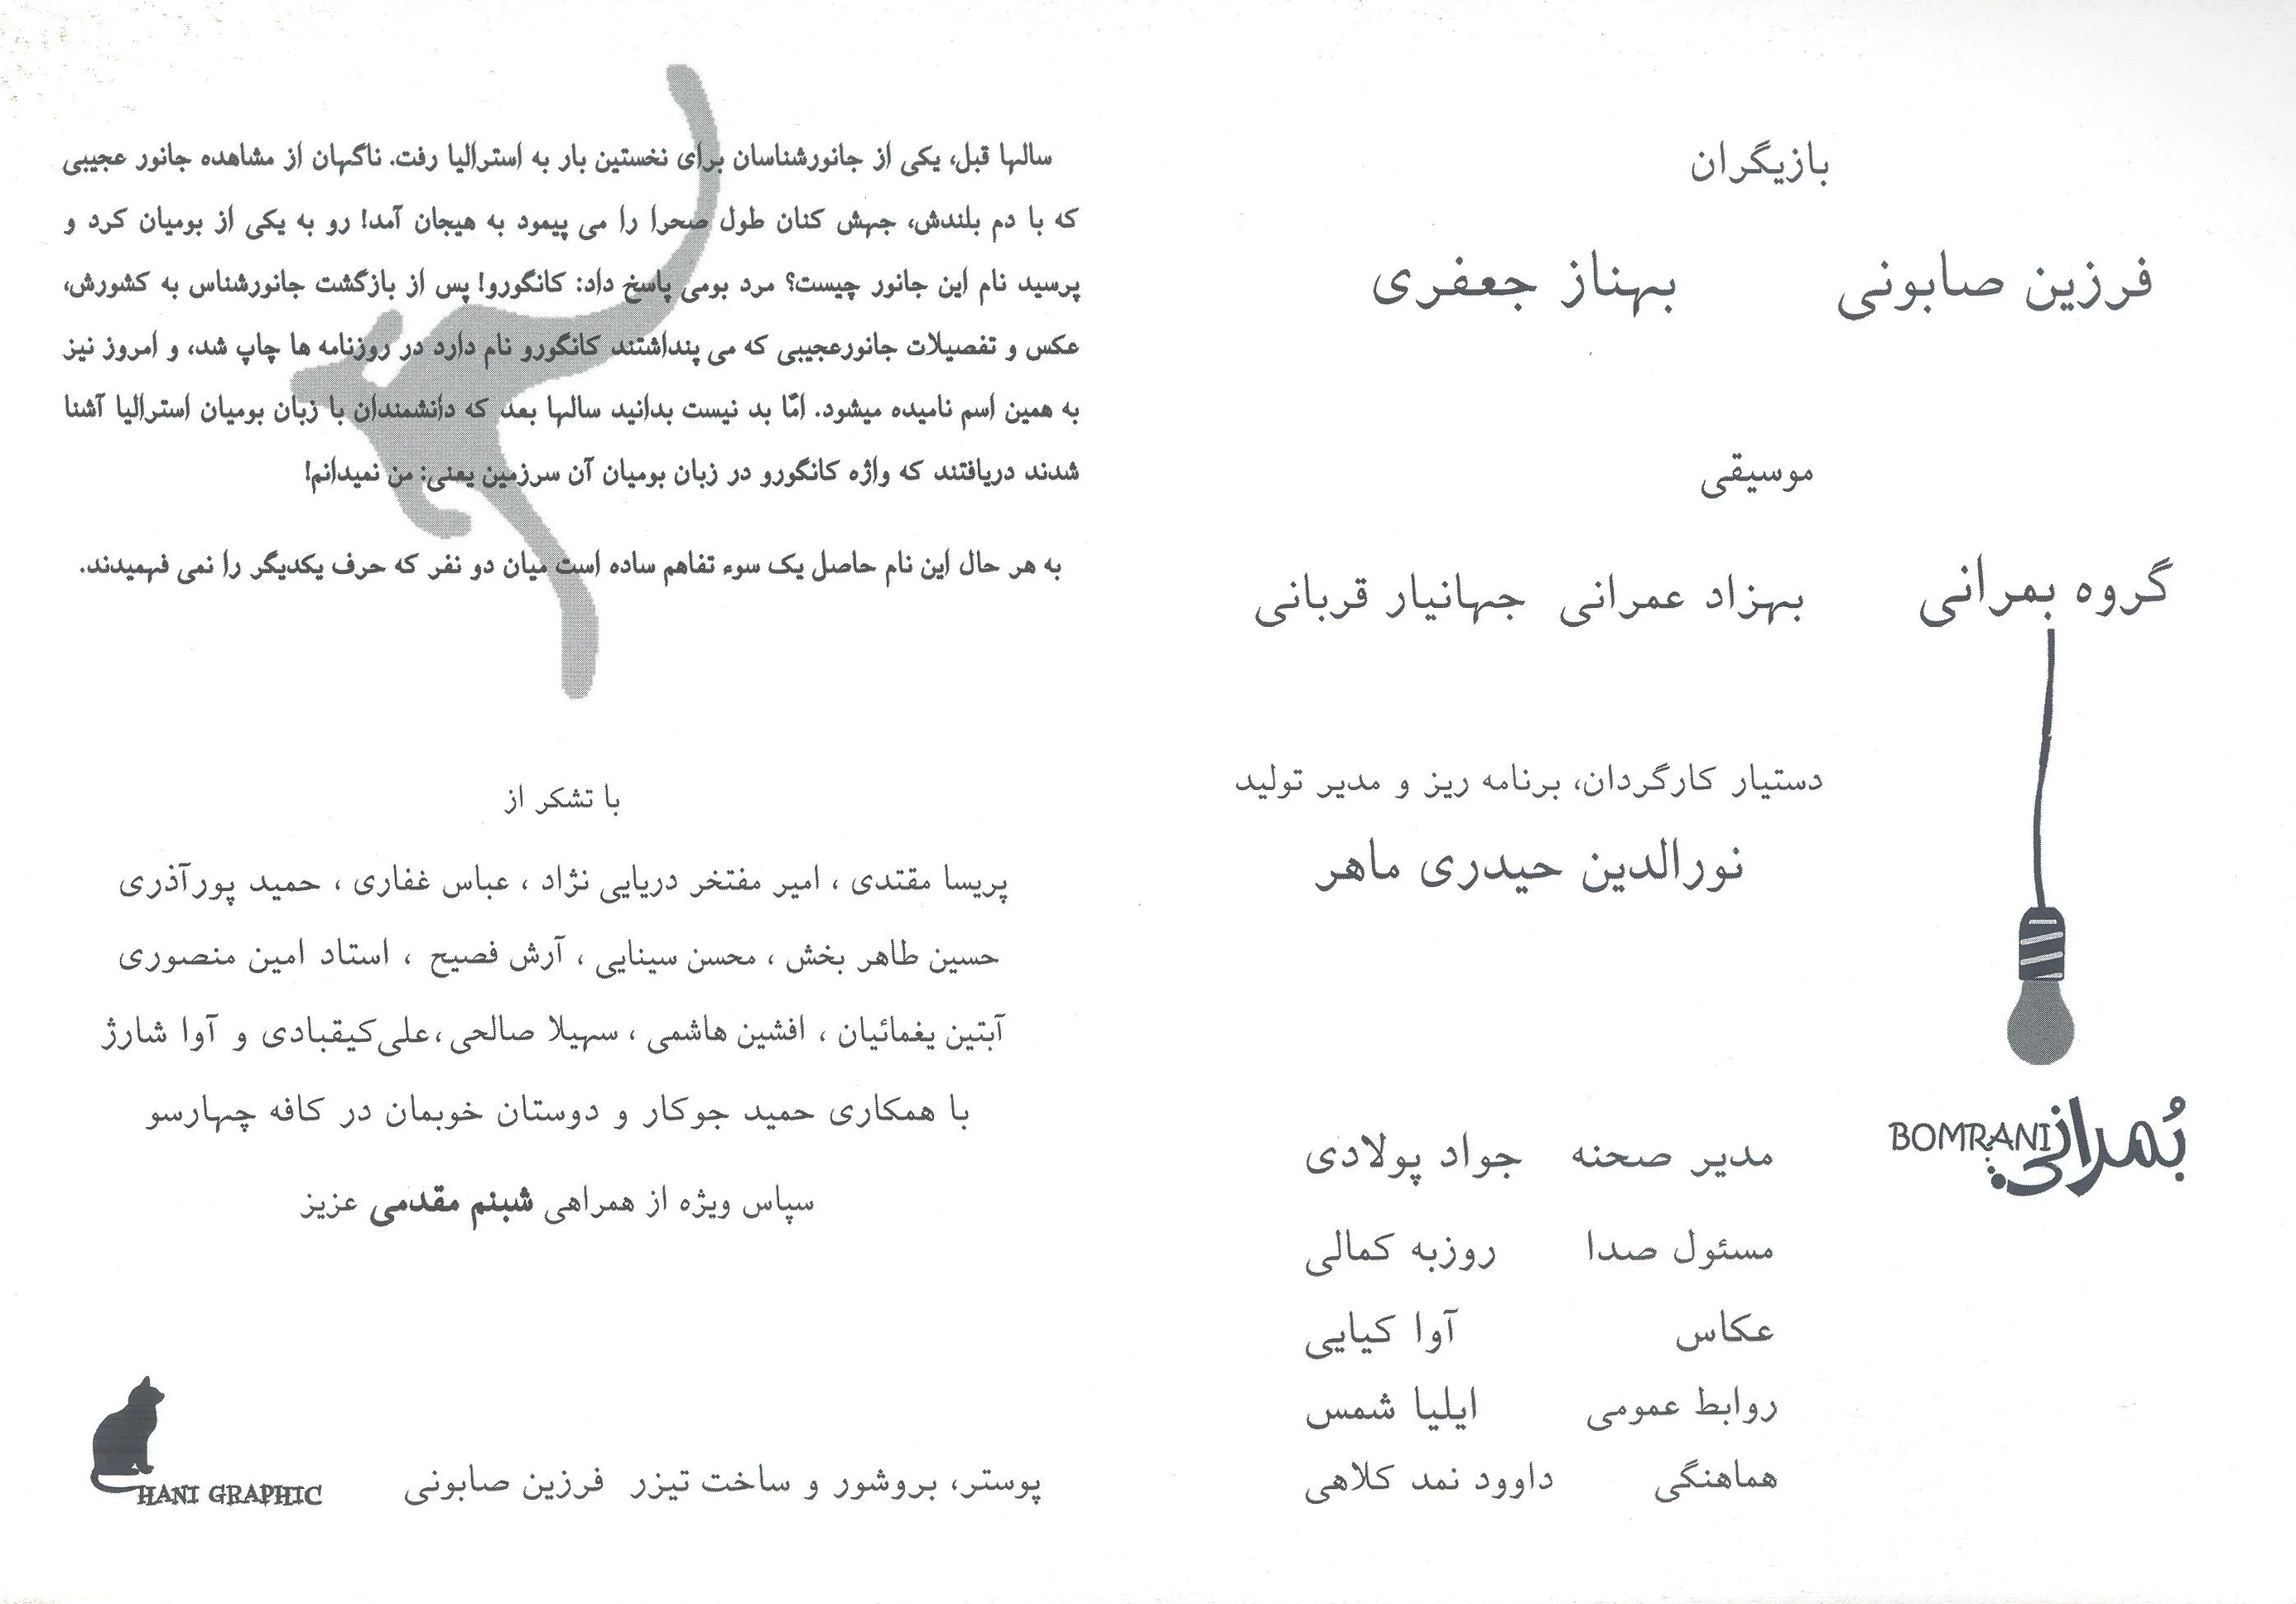 بازیگران
فرزین صابونی بهناز جعفری
موسیقی
گروه بمرانی بهزاد عمرانی جهانیار قربانی
دستیار کارگردان، برنامه ریز و مدیر تولید
نورالدین حیدری ماهر
بُمرانی BOMRANI
مدیر صحنه جواد پولادی
مسئول صدا روزبه کمالی
عکاس آوا کیایی
روابط عمومی ایلیا شمس
هماهنگی داوود نمد کلاهی
سالها قبل، یکی از جانورشناسان برای نخستین بار به استرالیا رفت. ناگهان از مشاهده جانور عجیبی
که با دم بلندش، جهش کنان طول صحرا را می پیمود به هیجان آمد! رو به یکی از بومیان کرد و
پرسید نام این جانور چیست؟ مرد بومی پاسخ داد: کانگورو! پس از بازگشت جانورشناس به کشورش،
عکس و تفصیلات جانورعجیبی که می پنداشتند کانگورو نام دارد در روزنامه ها چاپ شد، و امروز نیز
به همین اسم نامیده میشود. امّا بد نیست بدانید سالها بعد که دانشمندان با زبان بومیان استرالیا آشنا
شدند دریافتند که واژه کانگورو در زبان بومیان آن سرزمین یعنی: من نمیدانم!
به هر حال این نام حاصل یک سوء تفاهم ساده است میان دو نفر که حرف یکدیگر را نمی فهمیدند.
با تشکر از
پریسا مقتدی ، امیر مفتخر دریایی نژاد ، عباس غفاری ، حمید پورآذری
حسین طاهر بخش ، محسن سینایی ، آرش فصیح ، استاد امین منصوری
آبتین یغمائیان ، افشین هاشمی ، سهیلا صالحی ،علی‌کیقبادی و آوا شارژ
با همکاری حمید جوکار و دوستان خوبمان در کافه چهارسو
سپاس ویژه از همراهی شبنم مقدمی عزیز
پوستر، بروشور و ساخت تیزر فرزین صابونی
HANI GRAPHIC